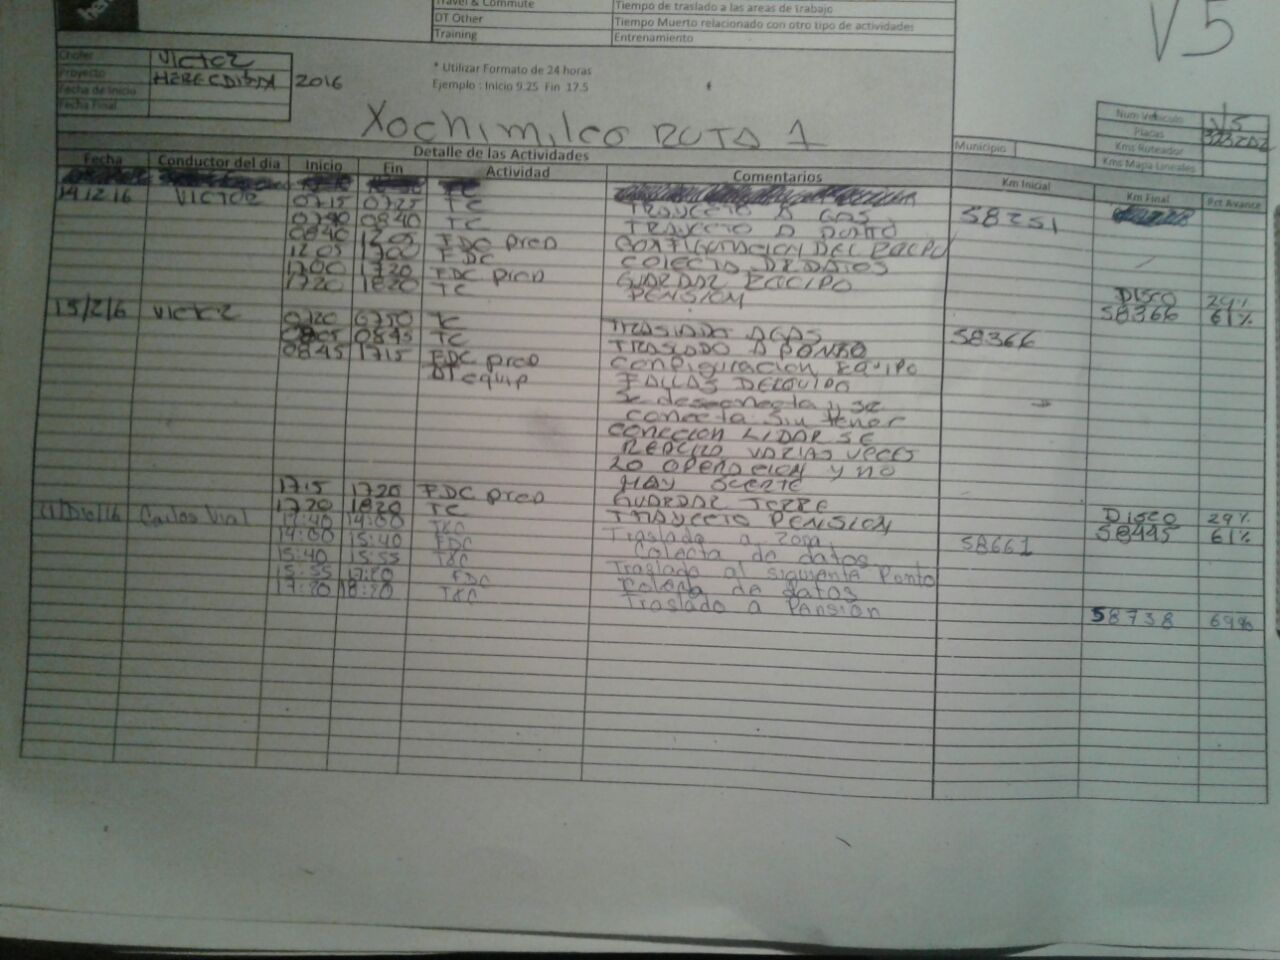 here
Travel & Commute Tiempo de traslado a las areas de trabajo
DT Other Tiempo Muerto relacionado con otro tipo de actividades
Training Entrenamiento
V5
Chofer VICTOR
Proyecto HERE CDMX 2016
Fecha de Inicio
Fecha Final
* Utilizar Formato de 24 horas
Ejemplo : Inicio 9.25 Fin 17.5
Xochimilco RUTA 1
Num Vehiculo V5
Placas
Kms Ruteador
Kms Mapa Lineales
Detalle de las Actividades Municipio
Fecha Conductor del dia Inicio Fin Actividad Comentarios Km Inicial Km Final Pct Avance
14/12/16 VICTOR 0715 0725 TC TRAYECTO A GAS 58251
0840 TC TRAYECTO A PUNTO
0840 1205 FDC prep CONFIGURACION DEL EQUIPO
1205 1700 FDC COLECTA DE DATOS
1700 1720 FDC prep GUARDAR EQUIPO
1720 1820 TC PENSION DISCO 29%
58366 61%
15/2/6 VICTOR 0720 0750 TC TRASLADO A GAS 58366
0805 0845 TC TRASLADO A PUNTO
0845 1715 FDC prep CONFIGURACION EQUIPO
DT equip FALLAS DE EQUIPO
se desconecta y se
conecta sin tener
CONECCION LIDAR SE
REALIZO VARIAS VECES
LA OPERACION y NO
HAY SUERTE
1715 1720 FDC prep GUARDAR TORRE
1720 1820 TC TRAYECTO PENSION DISCO 29%
58445 61%
Carlos Vial 14:00 T&C Traslado a zona 58661
14:00 15:40 FDC Colecta de datos
15:40 15:55 T&C Traslado al siguiente Punto
15:55 17:20 FDC Colecta de datos
17:20 18:20 T&C Traslado a Pension
58738 69%